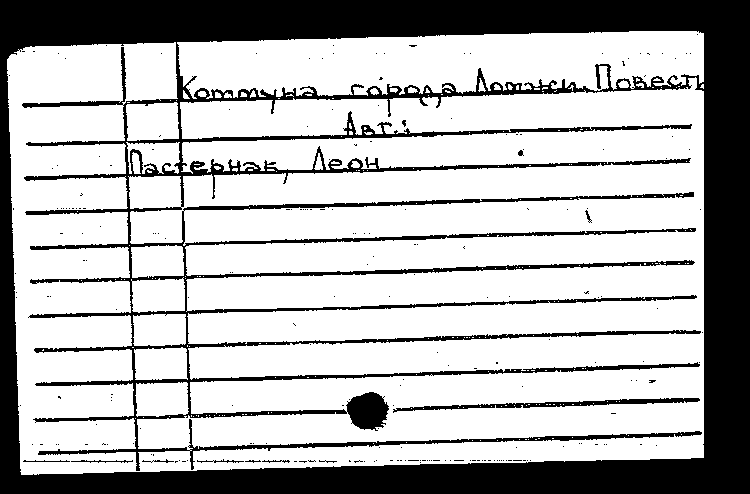 Коммуна города Ломжи. Повесть
Авт.:
Пастернак, Леон